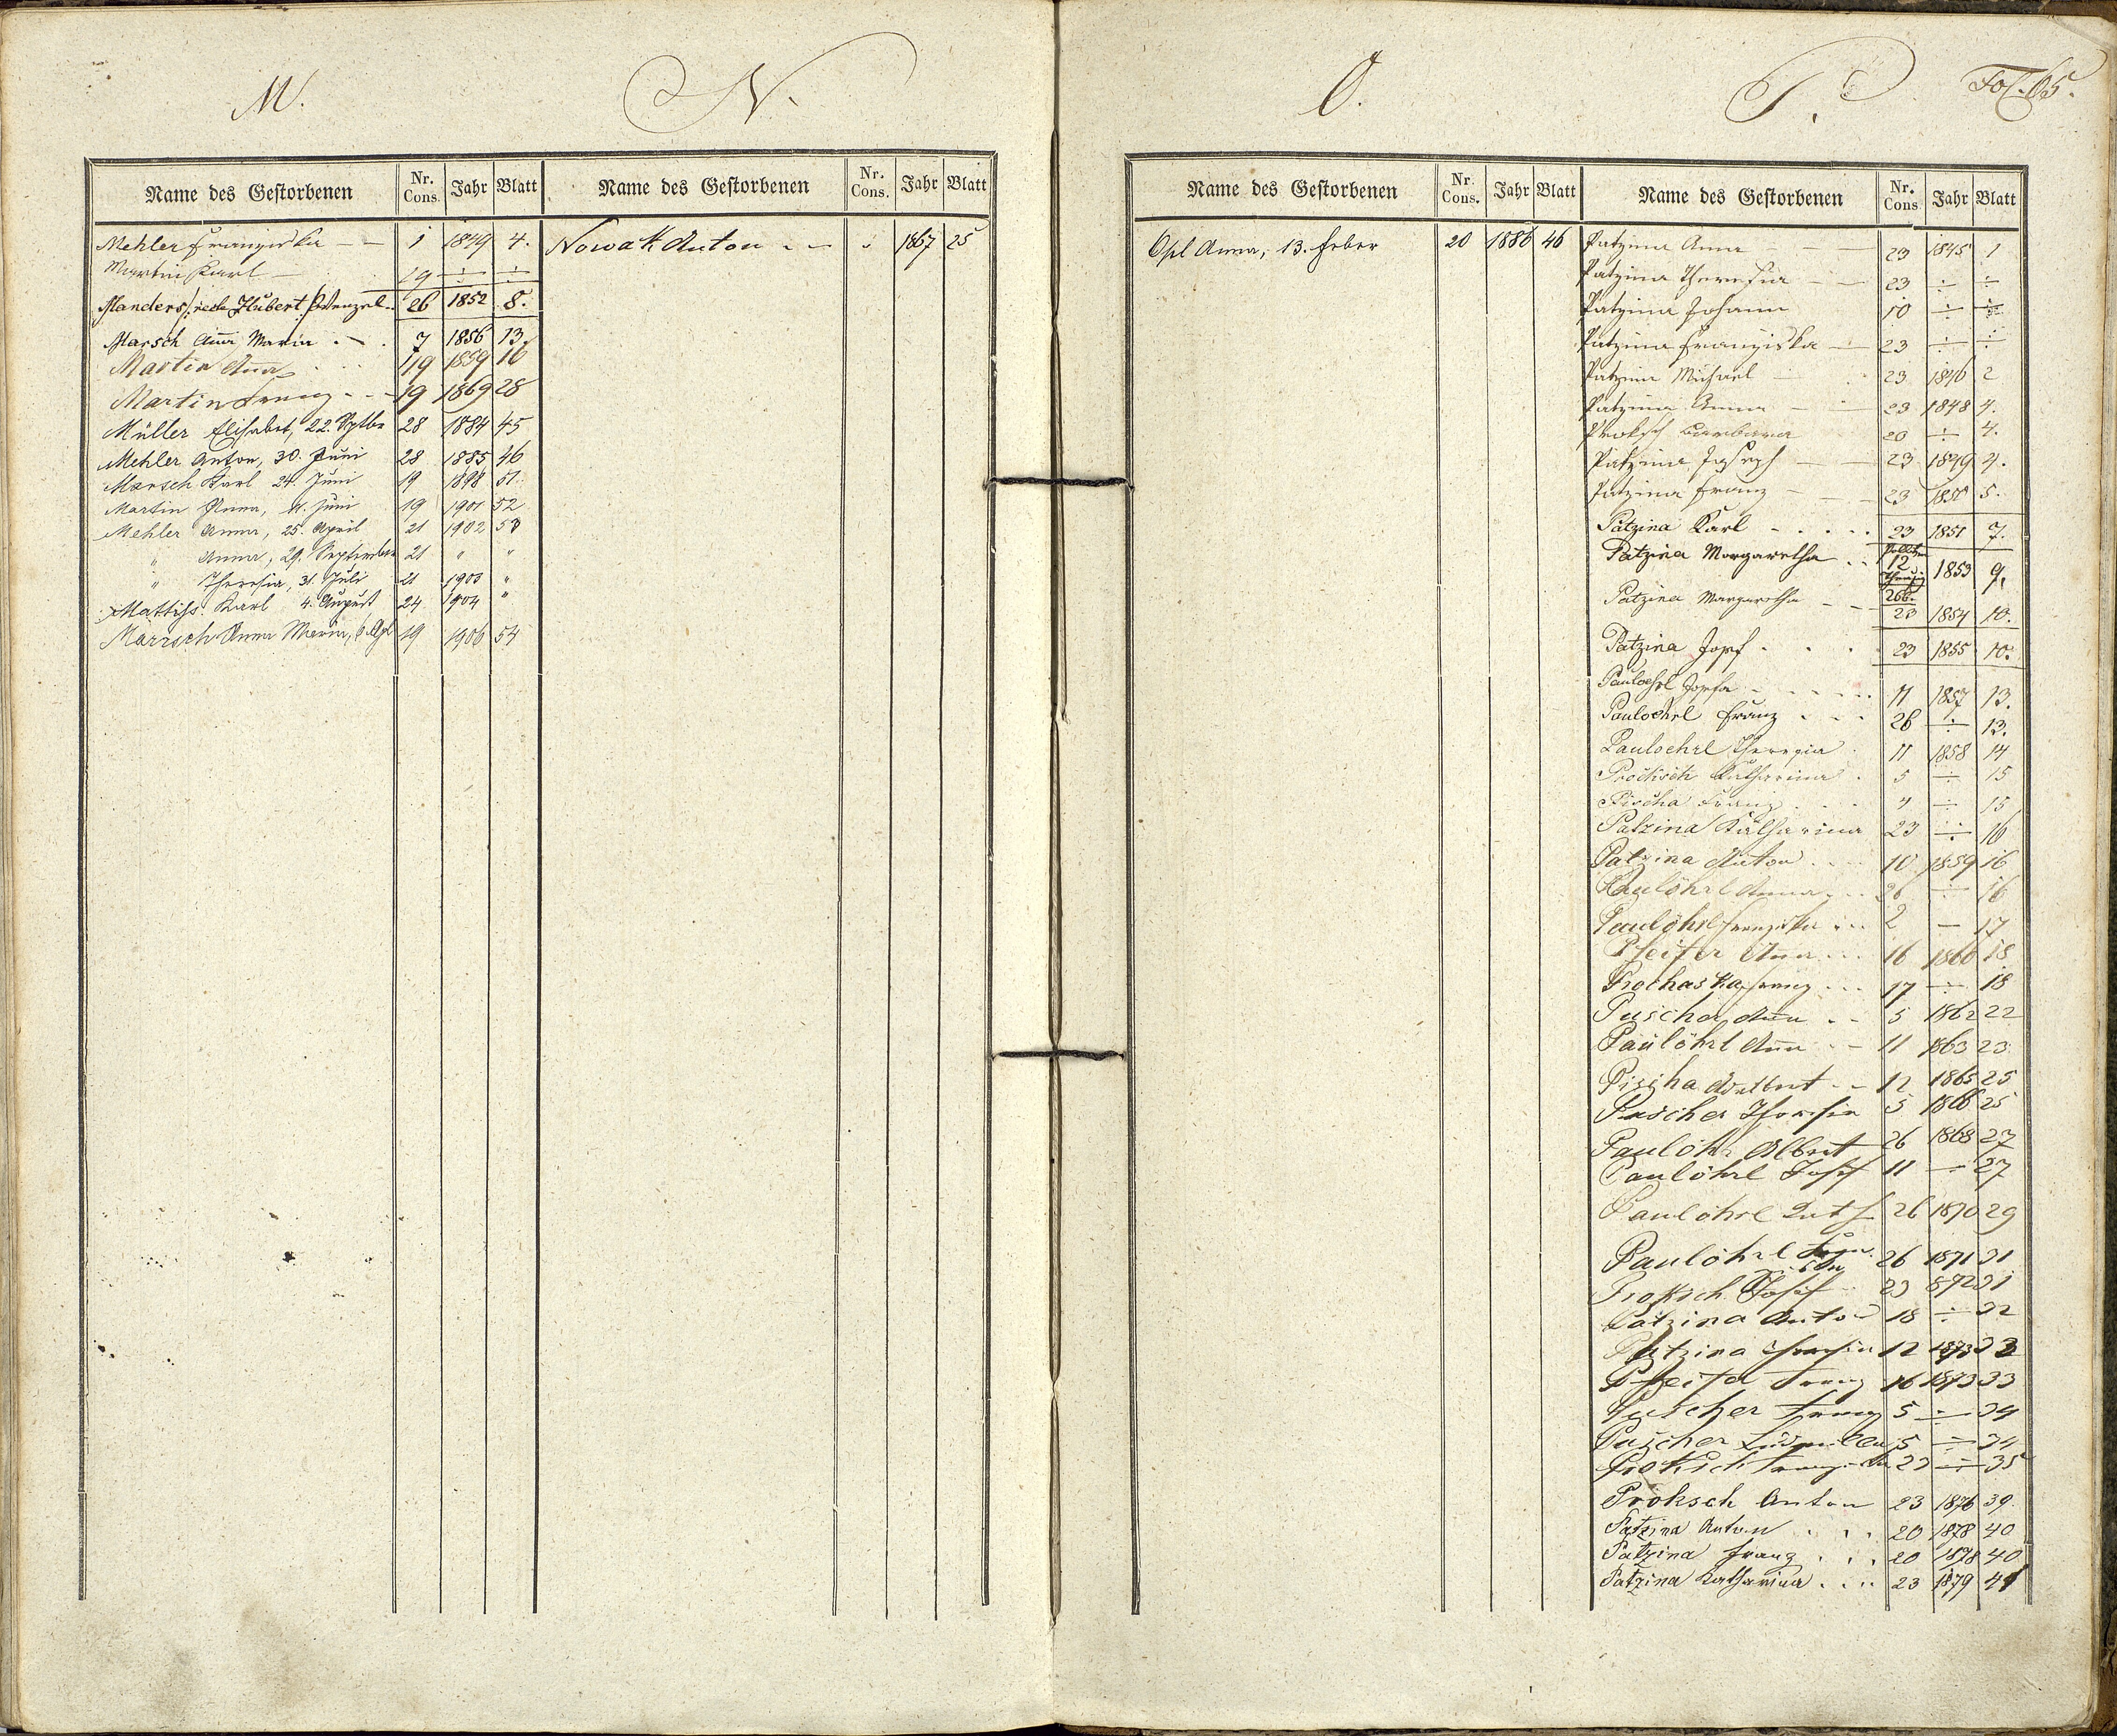 M.
N.
Name des Gestorbenen Nr. Cons. Jahr Blatt
Mehler Franziska — — 1 1849 4.
Martin Karl — 19 ÷ ÷
Manders /: recte Hubert :/ Wenzel. 26 1852 8.
Marsch Aña Maria . — . 7 1856 13.
Martin Aña . . . 19 1859 16
Martin Franz - - - 19 1869 28
Müller Elisabet, 22. Septbr 28 1884 45
Mehler Anton, 30. Juni 28 1885 46
Marsch Karl 24. Juni 19 1898 51.
Martin Anna, 11. Juni 19 1901 52
Mehler Anna, 25. April 21 1902 53
" Anna, 29. September 21 " "
" Theresia, 31. Juli 21 1903 "
Mattiss Karl 4. August 24 1904 "
Marisch Anna Maria, 6. Apl 19 1906 54
Name des Gestorbenen Nr. Cons. Jahr Blatt
Nowak Anton . — 1867 25
O.
P.
Fol. 65.
Name des Gestorbenen Nr. Cons. Jahr Blatt
Opl Anna, 13. Feber 20 1886 46
Name des Gestorbenen Nr. Cons Jahr Blatt
Patzina Anna — — 23 1845 1
Patzina Theresia — — 23 ÷ ÷
Patzina Johann 10 ÷ ÷
Patzina Franziska — 23 ÷ ÷
Patzina Michael — 23 1846 2
Patzina Anna — — 23 1848 4.
Proksch Barbara 20 ÷ 4.
Patzina Joseph — — 23 1849 4.
Patzina Franz — — 23 1850 5.
Patzina Karl - . . . . 23 1851 7.
Patzina Margaretha . . 12 266. 1853 9.
Patzina Margaretha — — 23 1854 10.
Patzina Josef . . . 23 1855 10.
Pauloehrl Josefa - - - - - 11 1857 13.
Pauloehrl Franz . . . 26 ÷ 13.
Pauloehrl Theresia . 11 1858 14
Katharina . 5 ÷ 15
Pischa Franz . . . " ÷ 15
Patzina Katharina 23 ÷ 16
Patzina Anton . . . 10 1859 16
Paulöhrl Anna - . . 26 ÷ 16
Paulöhrl Franziska . . . 2 — 17
Pfeifer Aña . . . 16 1860 18
Prochaska Franz . . . 17 ÷ 18
Puscher Aña . - 5 1862 22
Paulöhrl Aña - - 11 1863 23
Pischa Adalbert - - 12 1865 25
Puscher Theresia 5 1866 25
Paulöhr Albert 26 1868 27
Paulöhrl Josef 11 ÷ 27
Paulöhrl 26 1870 29
Paulöhrl 26 1871 31
Proksch Josef 23 872 31
Patzina Anton 18 ÷ 32
Patzina Theresia 12 1873 33
Pfeifer Franz 16 1873 33
Puscher Franz 5 ÷ 34
Puscher Ludmilla 5 ÷ 34
Proksch Franziska 23 ÷ 35
Proksch Anton 23 1876 39.
Patzina Anton . . . 20 1878 40
Patzina Franz . . . 20 1878 40
Patzina Katharina . . . 23 1879 41